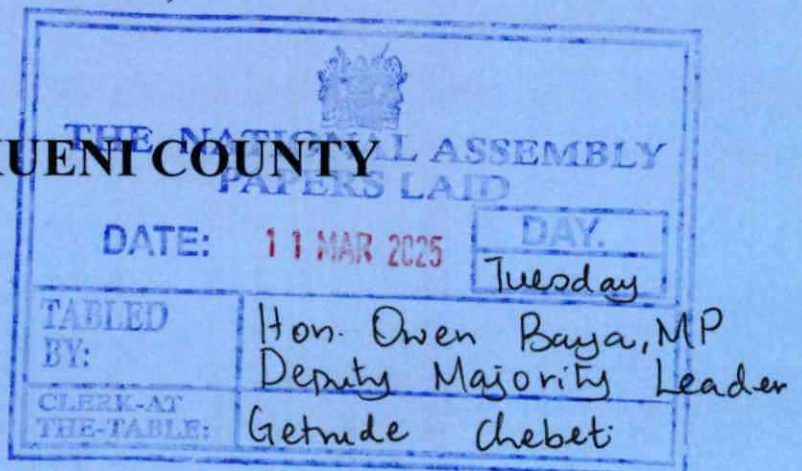 THE NATIONAL ASSEMBLY
UENI COUNTY
PAPERS LAID
DATE: 11 MAR 2025
DAY.
Tuesday
TABLED BY:
Hon. Owen Baya, MP
Deputy Majority Leader
CLERK-AT THE-TABLE:
Getrude Chebet